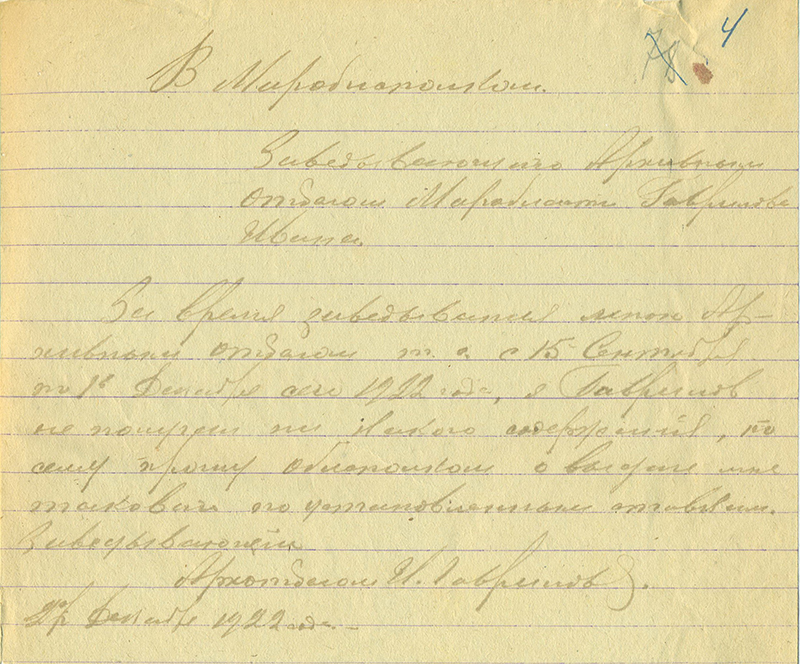 4
78
В Мароблисполком.
Заведывающего Архивным
отделом Маробласти Гаврилова
Ивана.
За время заведывания мною Ар-
хивным отделом т. е. с 15 Сентября
по 1е Декабря сего 1922 года, я Гаврилов
не получал ни какого содержания, по
сему прошу Облисполком о выдаче мне
такового по установленным ставкам.
Заведывающий
Архотделом И. Гаврилов
27/ Декабря 1922 года.-